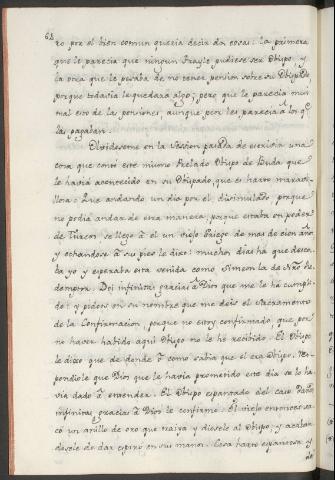 ro por el bien comun queria decir dos cosas: la primera
que le parecia que ningun Frayle pudiese ser Obispo: y
la otra que le pesaba de no tener pension sobre su Obispado,
porque todavia le quedara algo; pero que le parecia mui
mal esto de las pensiones, aunque peor les pareceria à los q.e
las pagaban.
Olvidoseme en la Session pasada de escrivir una
cosa que contó este mismo Prelado Obispo de Buda, que
le havia acontecido en su Obispado, que es harto maravi-
llosa: Que andando un dia por el disimulado, porque
no podia andar de otra manera, porque estaba en poder
de Turcos se llegó à el un viejo Griego de mas de cien años
y echandose à sus pies le dixo: muchos dias ha que desea-
ba yo y esperaba esta venida como Simeon la de N.ro Re-
demptor. Doi infinitas gracias à Dios que me lo ha cumpli-
do: y pidoos en su nombre que me deis el Sacramento
de la Confirmacion, porque no estoy confirmado, que por
no haver habido aqui Obispo no le he recibido. El Obispo
le dixo que de donde ò como sabia que el era Obispo. Res-
pondiole que Dios que le havia prometido este dia se lo ha-
via dado à entender. El Obispo espantado del caso dando
infinitas gracias à Dios le confirmó. El viejo entonces sa-
có un anillo de oro que traiya y dioselo al Obispo; y acaban-
doselo de dar espiró en sus manos. Cosa harto espantosa y